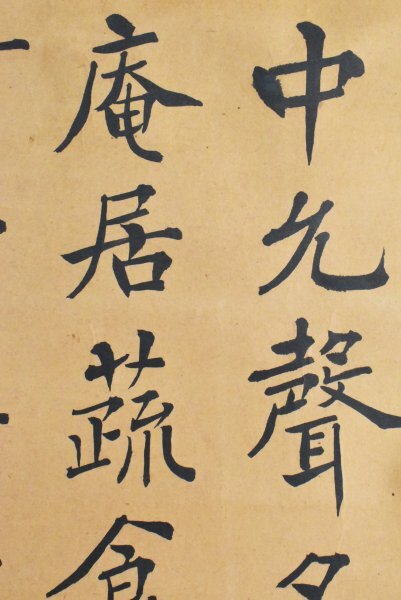 中允聲
庵居蔬食